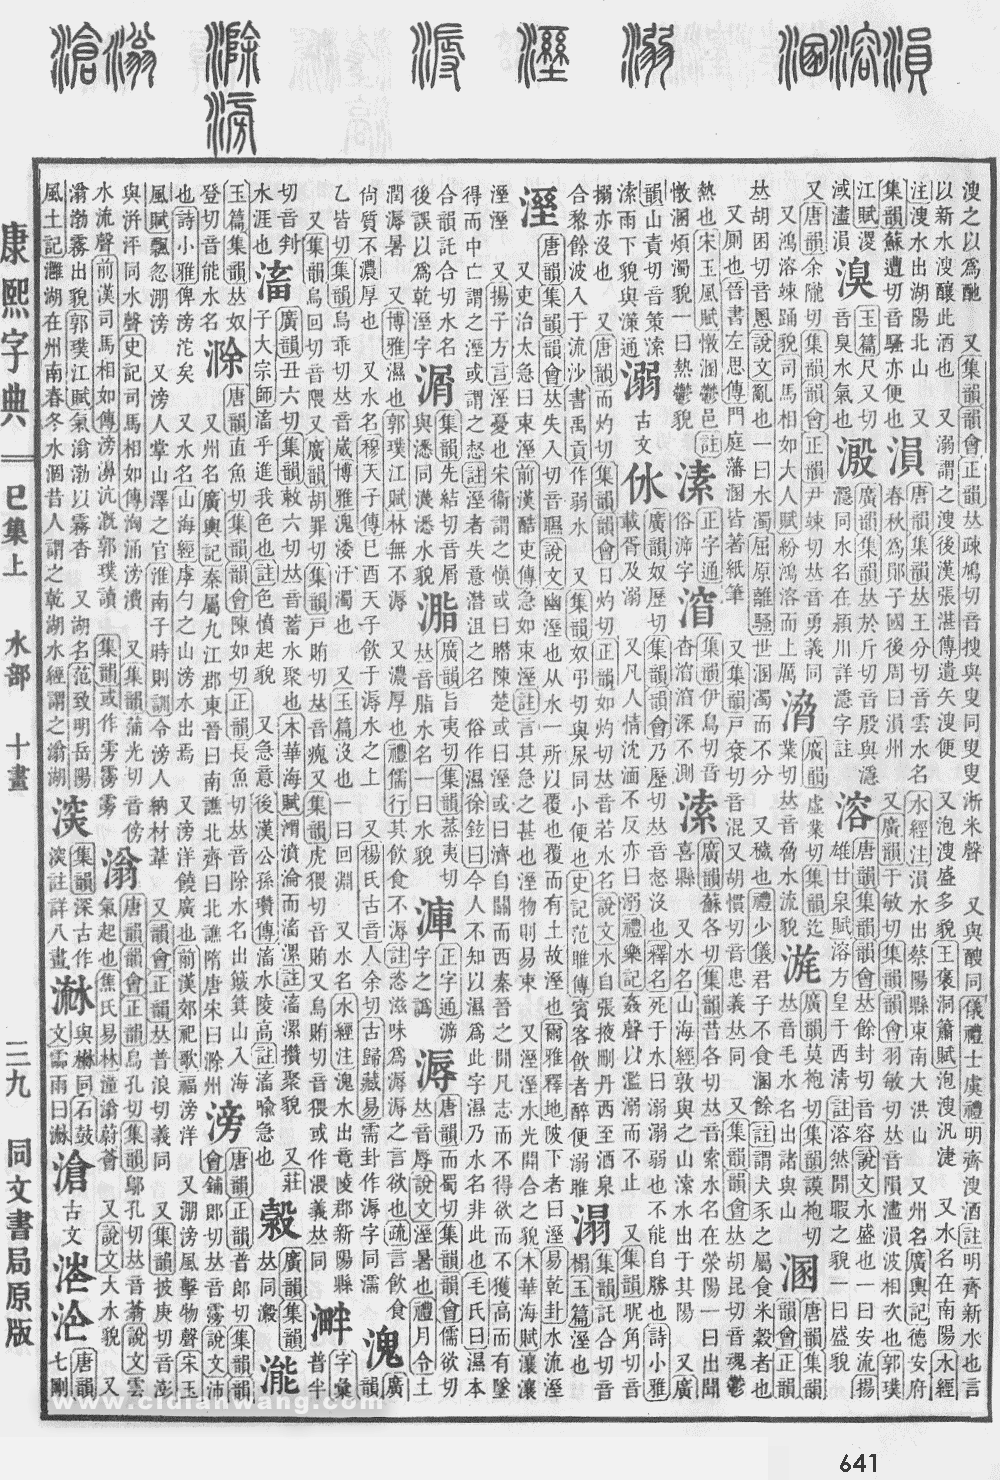 溲之以爲酏 又集韻韻會正韻𠀤疎鳩切音搜與叟同叟叟淅米聲 又與醙同儀禮士虞禮明齊溲酒註明齊新水也言
以新水溲釀此酒也 又溺謂之溲後漢張湛傳遺矢溲便 又泡溲盛多貌王褒洞簫賦泡溲汎㴙 又水名在南陽水經
注溲水出湖陽北山 又
集韻蘇遭切音騷亦便也
溳
唐韻集韻𠀤王分切音雲水名水經注溳水出蔡陽縣東南大洪山 又州名廣輿記德安府
春秋爲鄖子國後周曰溳州 又廣韻于敏切集韻韻會羽敏切𠀤音隕溳溳波相次也郭璞
江賦㴋
淢濜溳
溴
玉篇尺又切
音臭水氣也
溵
廣韻集韻𠀤於斤切音殷與㶏
㶏同水名在潁川詳㶏字註
溶
唐韻集韻韻會𠀤餘封切音容說文水盛也一曰安流揚
雄甘泉賦溶方皇于西清註溶然閒暇之貌一曰盛貌
又唐韻余隴切集韻韻會正韻尹竦切𠀤音勇義同
又鴻溶竦踊貌司馬相如大人賦紛鴻溶而上厲
廣韻虛業切集韻迄
業切𠀤音脅水流貌
廣韻莫袍切集韻謨袍切
𠀤音毛水名出諸與山
溷
唐韻集韻
韻會正韻
𠀤胡困切音慁說文亂也一曰水濁也屈原離騷世溷濁而不分 又穢也禮少儀君子不食溷餘註謂犬豕之屬食米穀者也
又厠也晉書左思傳門庭藩溷皆著紙筆 又集韻戸衮切音混又胡慣切音患義𠀤同 又集韻韻會𠀤胡昆切音魂鬱
熱也宋玉風賦憞溷鬱邑註
憞溷煩濁貌一曰熱鬱貌
溹
正字通
俗渧字
㴽
集韻伊鳥切音
杳㴽㴽深不測
溹
廣韻蘇各切集韻昔各切𠀤音索水名在滎陽一曰出聞
喜縣 又水名山海經敦與之山溹水出于其陽 又廣
韻山責切音策溹
溹雨下貌與㵻通
溺
古文
㲻
廣韻奴歷切集韻韻會乃歷切𠀤音惄沒也釋名死于水曰溺溺弱也不能自勝也詩小雅
載胥及溺 又凡人情沈湎不反亦曰溺禮樂記姦聲以濫溺而不止 又集韻昵角切音
搦亦沒也 又唐韻而灼切集韻韻會日灼切正韻如灼切𠀤音若水名說文水自張掖刪丹西至酒泉
合黎餘波入于流沙書禹貢作弱水 又集韻奴弔切與尿同小便也史記范雎傳賓客飮者醉便溺雎
溻
集韻託合切音
榻玉篇溼也
溼
唐韻集韻韻會𠀤失入切音㬤說文幽溼也从水一所以覆也覆而有土故溼也爾雅釋地陂下者曰溼易乾卦水流溼
又揚子方言溼憂也宋衞謂之愼或曰𥌕陳楚或曰溼或曰濟自關而西秦晉之閒凡志而不得欲而不獲高而有墜
得而中亡謂之溼或謂之惄註溼者失意潛沮之名 俗作濕徐鉉曰今人不知以濕爲此字濕乃水名非此也毛氏曰濕本
合韻託合切水名
後誤以爲乾溼字
㴮
集韻先結切音屑
與潃同
𣹢
廣韻旨夷切集韻蒸夷切
𠀤音脂水名一曰水貌
正字通滹
字之譌
溽
唐韻而蜀切集韻韻會儒欲切
𠀤音辱說文溼暑也禮月令土
潤溽暑 又博雅濕也郭璞江賦林無不溽 又濃厚也禮儒行其飮食不溽註恣滋味爲溽溽之言欲也疏言飮食
尙質不濃厚也 又水名穆天子傳巳酉天子飮于溽水之上 又楊氏古音人余切古歸藏易需卦作溽字同濡
溾
廣
韻
乙皆切集韻烏乖切𠀤音崴博雅溾㴰汙濁也 又玉篇沒也一曰回淵 又水名水經注溾水出竟陵郡新陽縣
又集韻烏回切音隈又廣韻胡罪切集韻戸賄切𠀤音瘣又集韻虎猥切音賄又烏賄切音猥或作渨義𠀤同
溿
字彙普半
切音判
水涯也
滀
廣韻丑六切集韻敕六切𠀤音蓄水聚也木華海賦㵽濆淪而滀漯註滀漯攢聚貌 又莊
子大宗師滀乎進我色也註色憤起貌 又急意後漢公孫瓚傳滀水陵高註滀喩急也
廣韻集韻
𠀤同瀔
滝
玉篇集韻𠀤奴
登切音能水名
滁
唐韻直魚切集韻韻會陳如切正韻長魚切𠀤音除水名出簸箕山入海
又州名廣輿記秦屬九江郡東晉曰南譙北齊曰北譙隋唐宋曰滁州
滂
唐韻正韻普郎切集韻韻
會鋪郎切𠀤音雱說文沛
也詩小雅俾滂沱矣 又水名山海經虖勺之山滂水出焉 又滂洋饒廣也前漢郊祀歌福滂洋 又淜滂風擊物聲宋玉
風賦飄忽淜滂 又滂人掌山澤之官淮南子時則訓令滂人納材葦 又韻會正韻𠀤普浪切義同 又集韻披庚切音澎
與泙泙同水聲史記司馬相如傳洶涌滂㵒 又集韻蒲光切音傍
水流聲前漢司馬相如傳滂濞沆漑郭璞讀 集韻或作雱霶雱
滃
唐韻韻會正韻烏孔切集韻鄔孔切𠀤音蓊說文雲
氣起也焦氏易林潼滃蔚薈 又說文大水貌 又
滃渤霧出貌郭璞江賦氣滃渤以霧杳 又湖名范致明岳陽
風土記灉湖在州南春冬水涸昔人謂之乾湖水經謂之滃湖
集韻深古作
㴸註詳八畫
㴇
與㵉同石鼓
文霝雨曰㴇
滄
古文
唐韻
七剛
康熙字典
巳集上
水部
十畫
三九
同文書局原版
www.cidianwang.com
641